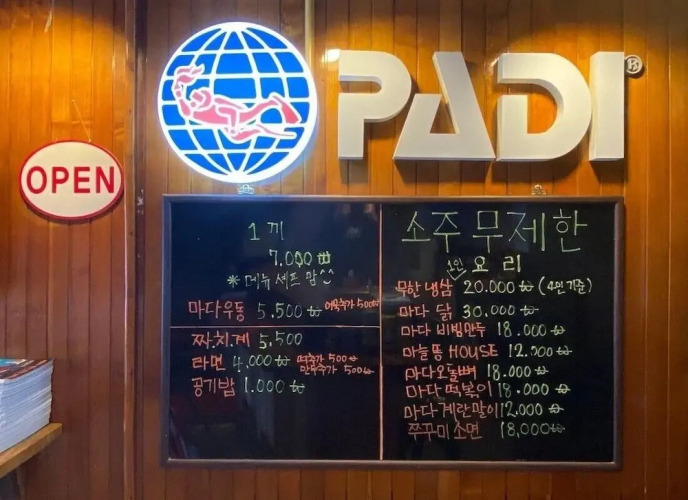 PADI®
OPEN
1 끼
7,000 ₩
* 메뉴 셰프 맘^^
마다우동 5,500 ₩ 어묵추가 500₩
짜.치.계 5,500
라면 4,000 ₩ 떡추가 500 ₩
만두추가 500 ₩
공기밥 1.000 ₩
소주 무제한
1인 요리
무한 냉삼 20.000 ₩ (4인 기준)
마다 닭 30,000 ₩
마다 비빔만두 18.000 ₩
마늘똥 HOUSE 12.500 ₩
마다오돌뼈 18.000 ₩
마다 떡볶이 18.000 ₩
마다 계란말이 12,000 ₩
쭈꾸미소면 18,000₩